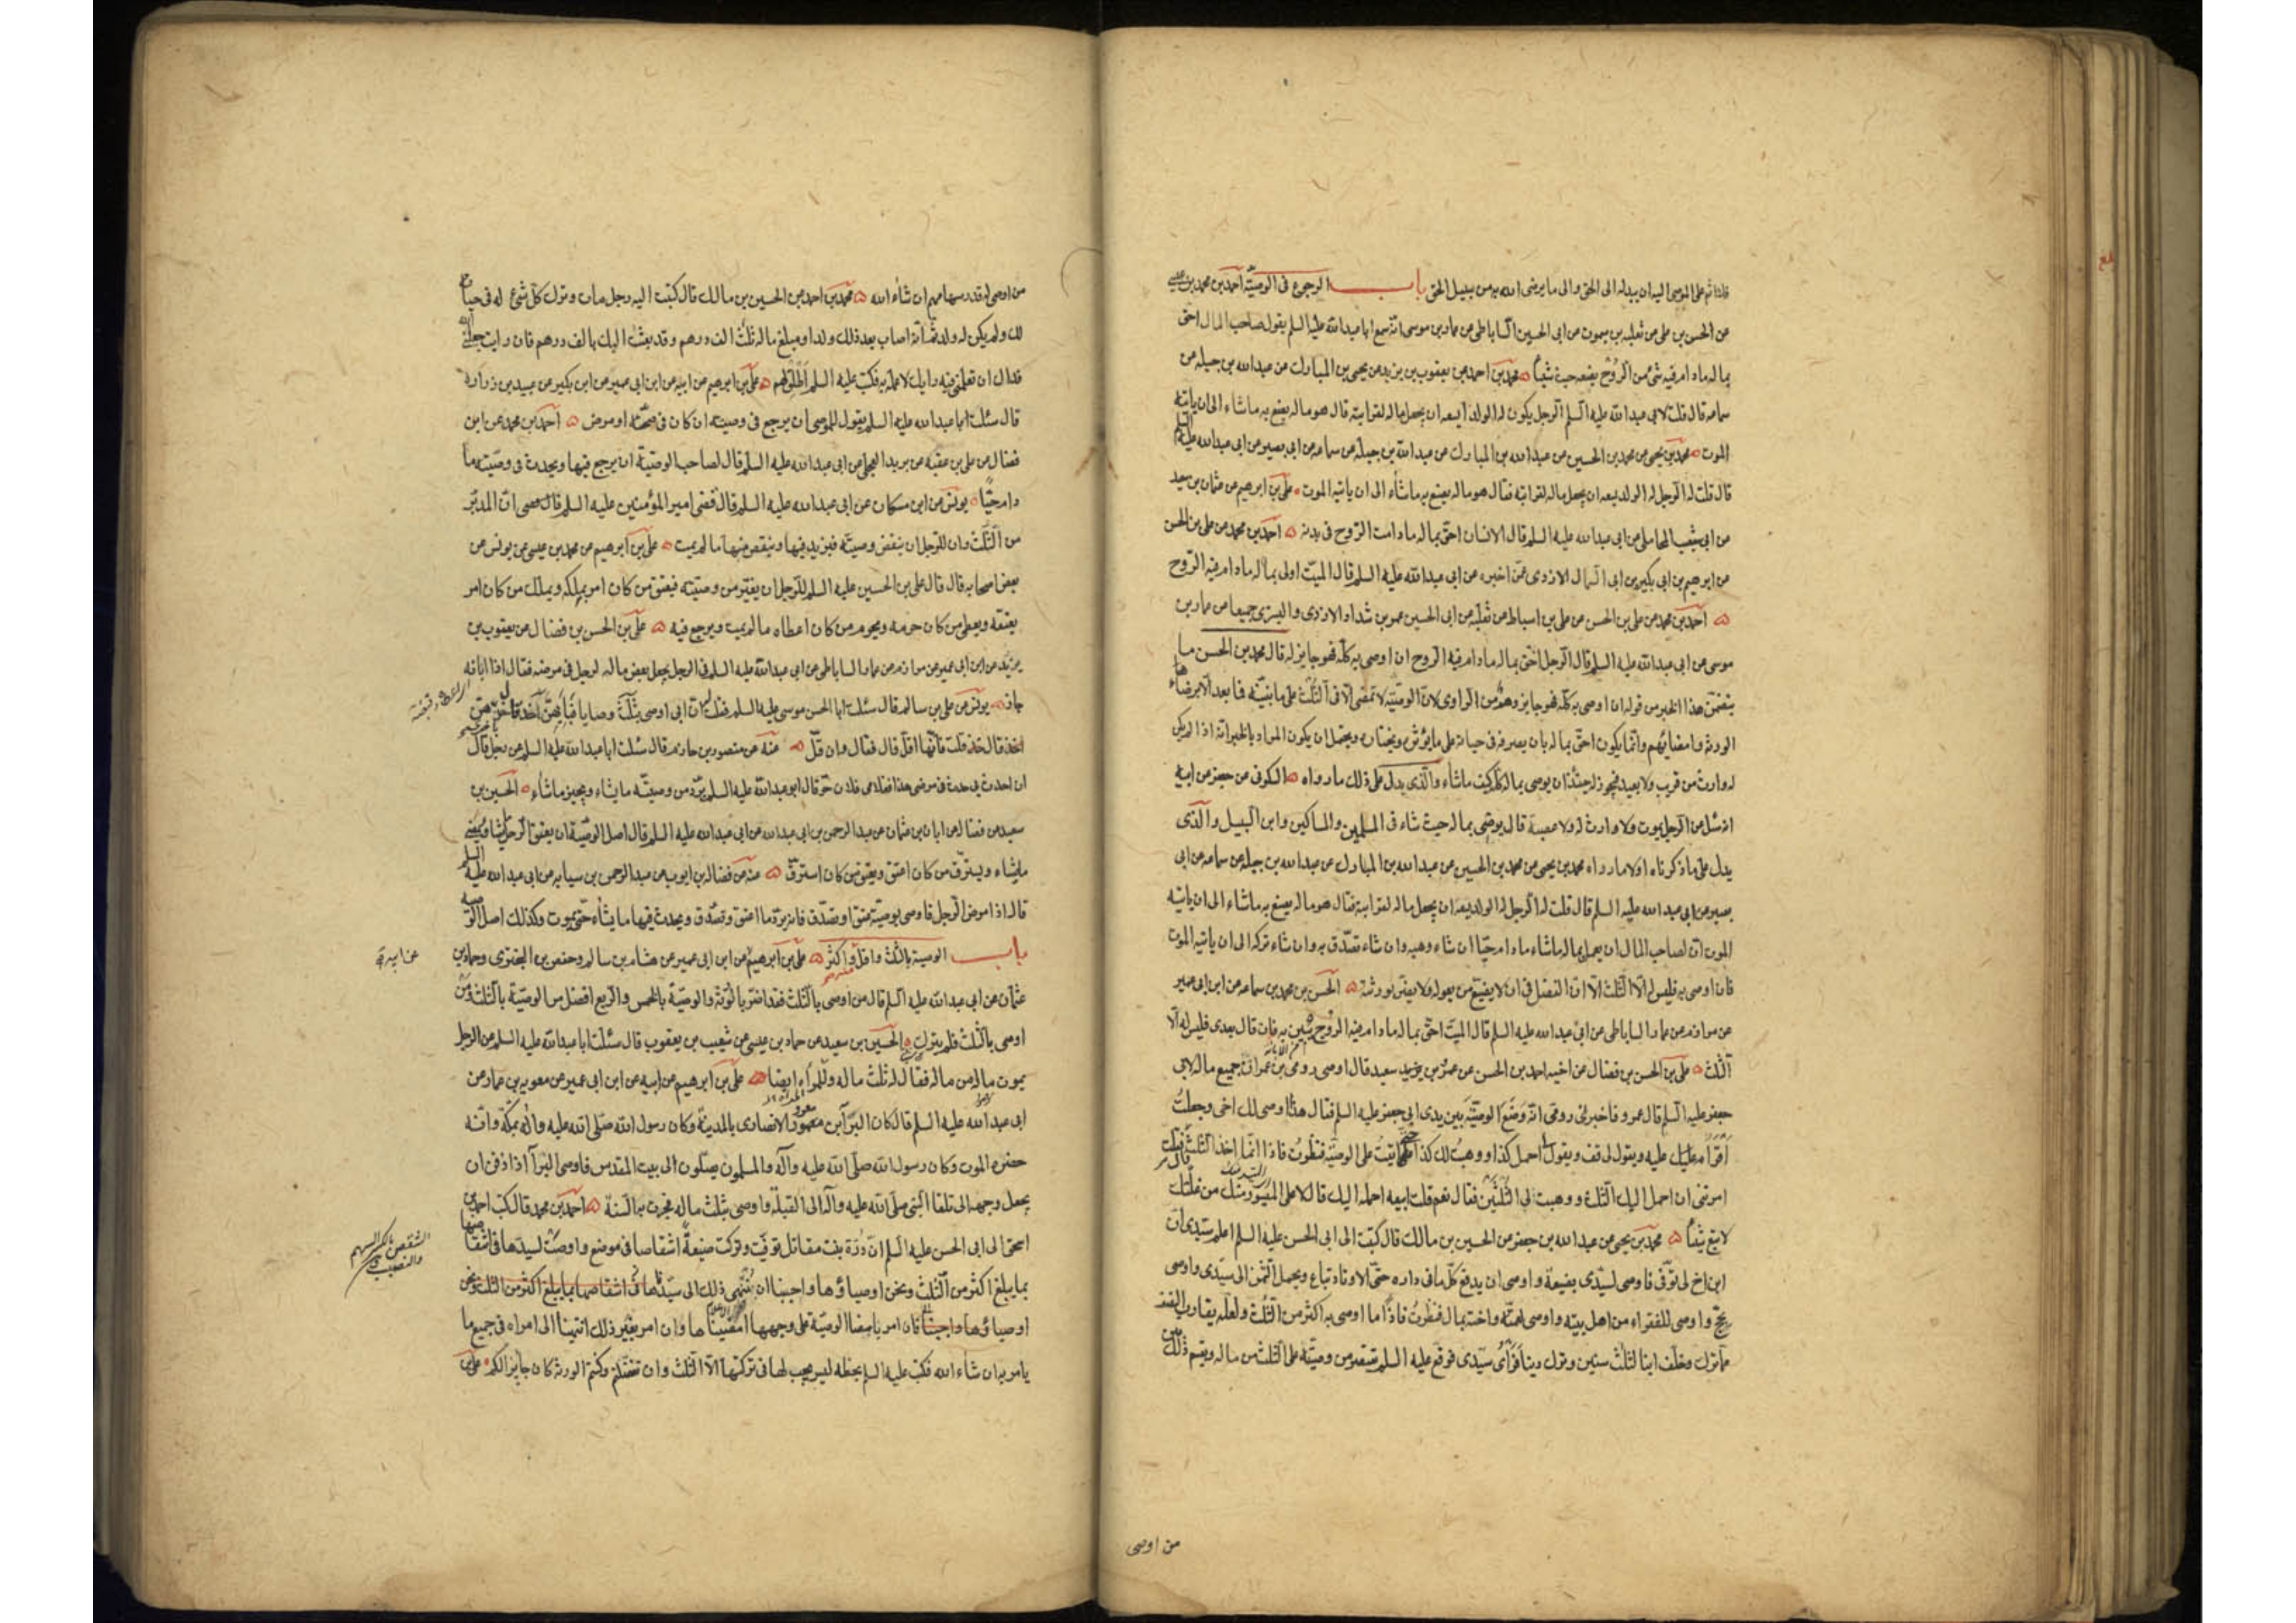 فلا اثم على الموصى اليه ان يبدله الى الحق والى ما يرضى الله به من سبيل الحق باب الرجوع فى الوصيّة احمد بن محمد بن عيسى
عن الحسن بن على عن ثعلبه بن ميمون عن ابى الحسين الساباطى عن عمار بن موسى انه سمع ابا عبد الله عليه السلم يقول صاحب المال احق
بماله مادام فيه شئ من الرّوح يضعه حيث شاء محمد بن احمد عن يعقوب بن يزيد عن يحيى بن المبارك عن عبد الله بن جبله عن
سماعه قال قلت لابى عبد الله عليه السلم الرجل يكون له الولد ايسعه ان يجعل ماله لقرابته قال هو ماله يصنع به ما شاء الى ان ياتيه
الموت محمد بن يحيى عن محمد بن الحسين عن عبد الله بن المبارك عن عبد الله بن جبلة عن سماعه عن ابى بصير عن ابى عبد الله عليه السلم
قال قلت له الرجل له الولد يسعه ان يجعل ماله لقرابته فقال هو ماله يصنع به ما شاء الى ان ياتيه الموت على بن ابرهيم عن عثمان بن سعيد
عن ابى شعيب المحاملى عن ابى عبد الله عليه السلم قال الانسان احق بماله ما دامت الروح فى بدنه احمد بن محمد عن على بن الحسن
عن ابرهيم بن ابى بكير بن ابى السمال الازدى عمّن اخبره عن ابى عبد الله عليه السلم قال الميّت اولى بماله مادام فيه الروح
احمد بن محمد عن على بن الحسن عن على بن اسباط عن ثعلبه عن ابى الحسين عمرو بن شداد الازدى والسرى جميعا عن عمار بن
موسى عن ابى عبد الله عليه السلم قال الرجل احق بماله مادام فيه الروح ان اوصى به كله فهو جايز له قال محمد بن الحسن ما
يتضمن هذا الخبر من قوله ان اوصى به كله فهو جايز وهم من الراوى لانّ الوصيّة لا تمضى الّا فى الثلث على ما نبيّنه فيما بعد الّا برضاء
الورثة وامضائهم وانما يكون احق بماله بان يصرفه فى حياته على ما يؤثر ويختاره ويحتمل ان يكون المراد بالخبر انه اذا لم يكن
له وارث من قريب ولا بعيد فيجوز له حينئذ ان يوصى بماله كله كيف ماشاء والذى يدل على ذلك ما رواه السكونى عن جعفر عن ابيه
انه سئل عن الرجل يموت ولا وارث له ولا عصبة قال يوصى بماله حيث شاء فى المسلمين والمساكين وابن السبيل والذى
يدل على ما ذكرناه اولا ما رواه محمد بن يحيى عن محمد بن الحسين عن عبد الله بن المبارك عن عبد الله بن جبله عن سماعه عن ابى
بصير عن ابى عبد الله عليه السلم قال قلت له الرجل له الولد يسعه ان يجعل ماله لقرابته فقال هو ماله يصنع به ماشاء الى ان ياتيه
الموت ان لصاحب المال ان يعمل بماله ماشاء مادام حيّا ان شاء وهبه وان شاء تصدّق به وان شاء تركه الى ان ياتيه الموت
فان اوصى به فليس له الّا الثلث الّا ان الفضل فى ان لا يضيّع من يعوله ولا يضر بورثته الحسن بن محمد بن سماعه عن ابن ابى عمير
عن مرازم عن عمار الساباطى عن ابى عبد الله عليه السلم قال الميت احق بماله مادام فيه الروح يبين به فان قال بعدى فليس له الّا
الثلث على بن الحسن بن فضال عن اخيه احمد بن الحسن عن عمرو بن سعيد قال اوصى رومى بن عمران جميع ماله لابى
جعفر عليه السلم قال عمرو فاخبرنى رومى انه وضع الوصيّة بين يدى ابى جعفر عليه السلم فقال هذا ما اوصى لك اخى وجعلت
اقرا عليه ويقول لى قف ويقول احمل كذا ووهبت لك كذا حتى اتيت على الوصيّة فنظرت فاذا انّما اخذ الثلث فقلت
امرتنى ان احمل اليك الثلث ووهبت لى الثلثين فقال نعم قلت ابيعه احمله اليك قال لا على الميسور منك من غلّتك
لا تبع شيئا محمد بن يحيى عن عبد الله بن جعفر عن الحسين بن مالك قال كتبت الى ابى الحسن عليه السلم اعلم سيّدى ان
ابن اخ لى توفّى فاوصى لسيّدى بضيعة واوصى ان يدفع كلّ ما فى داره حتى الاوتاد تباع ويحمل الثمن الى سيّدى واوصى
بحجّ واوصى للفقراء من اهل بيته واوصى لعمّته واخته بمال فنظرت فاذا ما اوصى به اكثر من الثلث ولعله يقارب النصف
مما ترك وخلّف ابنا لثلث سنين وترك دينا فرأى سيّدى فوقع عليه السلم يقتصر من وصيّته على الثلث من ماله ويقسم ذلك بين
من اوصى
من اوصى له بقدر سهامهم ان شاء الله محمد بن احمد عن الحسين بن مالك قال كتبت اليه رجل مات وترك كلّ شئ له فى حياته
لك ولم يكن له ولد ثم انه اصاب بعد ذلك ولدا ومبلغ ماله ثلثة الف درهم وقد بعثت اليك بالف درهم فان رايت جعلنى الله
فداك ان تعلمنى فيه رايك لاعمل به فكتب عليه السلم اطلق لهم على بن ابرهيم عن ابيه عن ابن ابى عمير عن ابن بكير عن عبيد بن زرارة
قال سئلت ابا عبد الله عليه السلم يقول للموصى ان يرجع فى وصيته ان كان فى صحّة او مرض احمد بن محمد عن ابن
فضال عن على بن عقبه عن بريد العجلى عن ابى عبد الله عليه السلم قال لصاحب الوصيّة ان يرجع فيها ويحدث فى وصيّته ما
دام حيّا يونس عن ابن مسكان عن ابى عبد الله عليه السلم قال قضى امير المؤمنين عليه السلم ان المدبّر
من الثلث وان للرجل ان ينقض وصيّته فيزيد فيها وينقص منها ما لم يمت على بن ابرهيم عن محمد بن عيسى عن يونس عن
بعض اصحابه قال قال على بن الحسين عليه السلم للرجل ان يغيّر من وصيّته فيعتق من كان امر بملكه ويملك من كان امر
بعتقه ويعطى من كان حرمه ويحرم من كان اعطاه ما لم يمت ويرجع فيه على بن الحسن بن فضال عن يعقوب بن
يزيد عن ابن ابى عمير عن مرازم عن عمار الساباطى عن ابى عبد الله عليه السلم فى الرجل يجعل بعض ماله لرجل فى مرضه فقال اذا ابانه
جاز يونس عن على بن سالم قال سئلت ابا الحسن موسى عليه السلم فقلت ان ابى اوصى بثلث وصايا فبايّهنّ آخذ قال خذ باخرهن
قلت فانّها اقلّ قال فقال وان قلّ عنه عن منصور بن حازم قال سئلت ابا عبد الله عليه السلم عن رجل قال
ان احدث بى حدث فى مرضى هذا فغلامى فلان حرّ قال ابو عبد الله عليه السلم يردّ من وصيّته ما يشاء ويجيز ماشاء الحسين بن
سعيد عن فضالة عن ابان بن عثمان عن عبد الرحمن بن ابى عبد الله عن ابى عبد الله عليه السلم قال اصل الوصيّة ان يعتق الرجل ماشاء ويمضى
مايشاء ويسترقّ من كان اعتق ويعتق من كان استرقّ عنه عن فضاله بن ايوب عن عبد الرحمن بن سيابه عن ابى عبد الله عليه السلم
قال اذا مرض الرجل فاوصى بوصيّة عتق او تصدّق فانه يردّ ما اعتق وتصدّق ويحدث فيها ما يشاء حتّى يموت وكذلك اصل الوصيه
باب الوصية بالثلث واقلّ واكثر على بن ابرهيم عن ابن ابى عمير عن هشام بن سالم وحفص بن البخترى وحماد بن
عن ابيه
عثمان عن ابى عبد الله عليه السلم قال من اوصى بالثلث فقد اضرّ بالورثة والوصيّة بالخمس والربع افضل من الوصيّة بالثلث ومن
اوصى بالثلث فلم يترك الحسين بن سعيد عن حماد بن عيسى عن شعيب بن يعقوب قال سئلت ابا عبد الله عليه السلم عن الرجل
يموت ماله من ماله فقال له ثلث ماله وللمرأة ايضا على بن ابرهيم عن ابيه عن ابن ابى عمير عن معويه بن عمار عن
ابى عبد الله عليه السلم قال كان البرّاء بن معرور الانصارى بالمدينة وكان رسول الله صلّى الله عليه وآله بمكّة وانّه
حضره الموت وكان رسول الله صلّى الله عليه وآله والمسلمون يصلّون الى بيت المقدس فاوصى البراء اذا دفن ان
يجعل وجهه الى تلقاء النبى صلّى الله عليه وآله الى القبلة واوصى بثلث ماله فجرت به السنة احمد بن محمد قال كتب احمد بن
اسحق الى ابى الحسن عليه السلم انّ درّة بنت مقاتل توفّيت وتركت ضيعة اشقاصا فى موضع واوصت لسيّدها فى اشقاصها
الشقص بالكسر السهم
والنصيب
بما يبلغ اكثر من الثلث ونحن اوصياؤها واحببنا ان ننهى ذلك الى سيّدنا
اوصياؤها واحببنا فان امر بامضاء الوصيّة على وجهها امضيناها وان امر بغير ذلك انتهينا الى امره فى جميع ما
يامر به ان شاء الله فكتب عليه السلم بخطه ليس يجب لها فى تركتها الّا الثلث وان تفضّلتم وكنتم الورثة كان جايزا لكم على بن